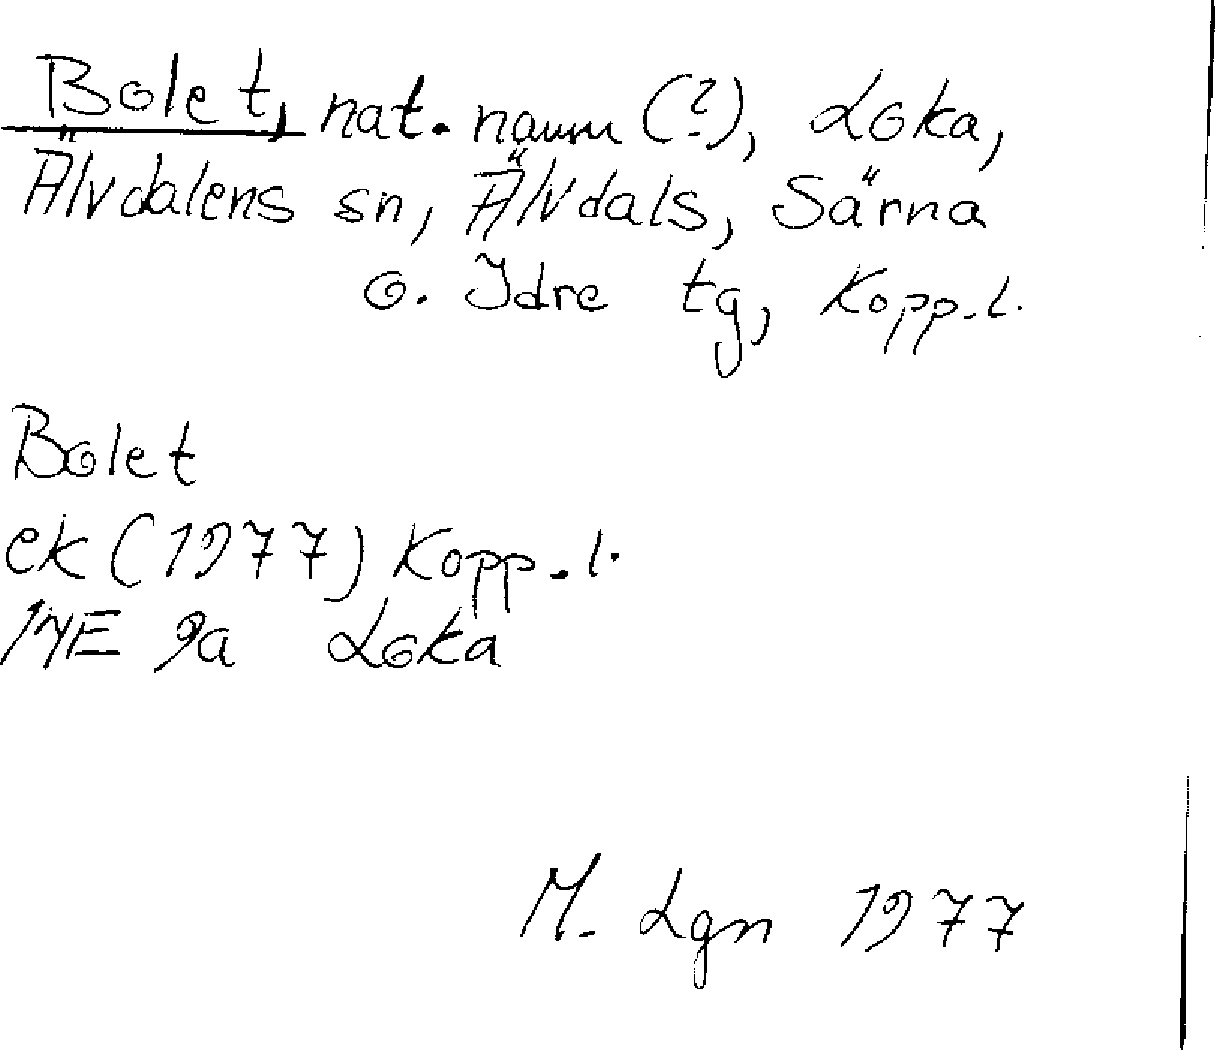 Bolet, nat. namn (?), Loka,
Älvdalens sn, Älvdals, Särna
o. Idre tg, Kopp. l.
Bolet
ek (1977) Kopp. l.
14E 9a Loka
M. Lgn 1977